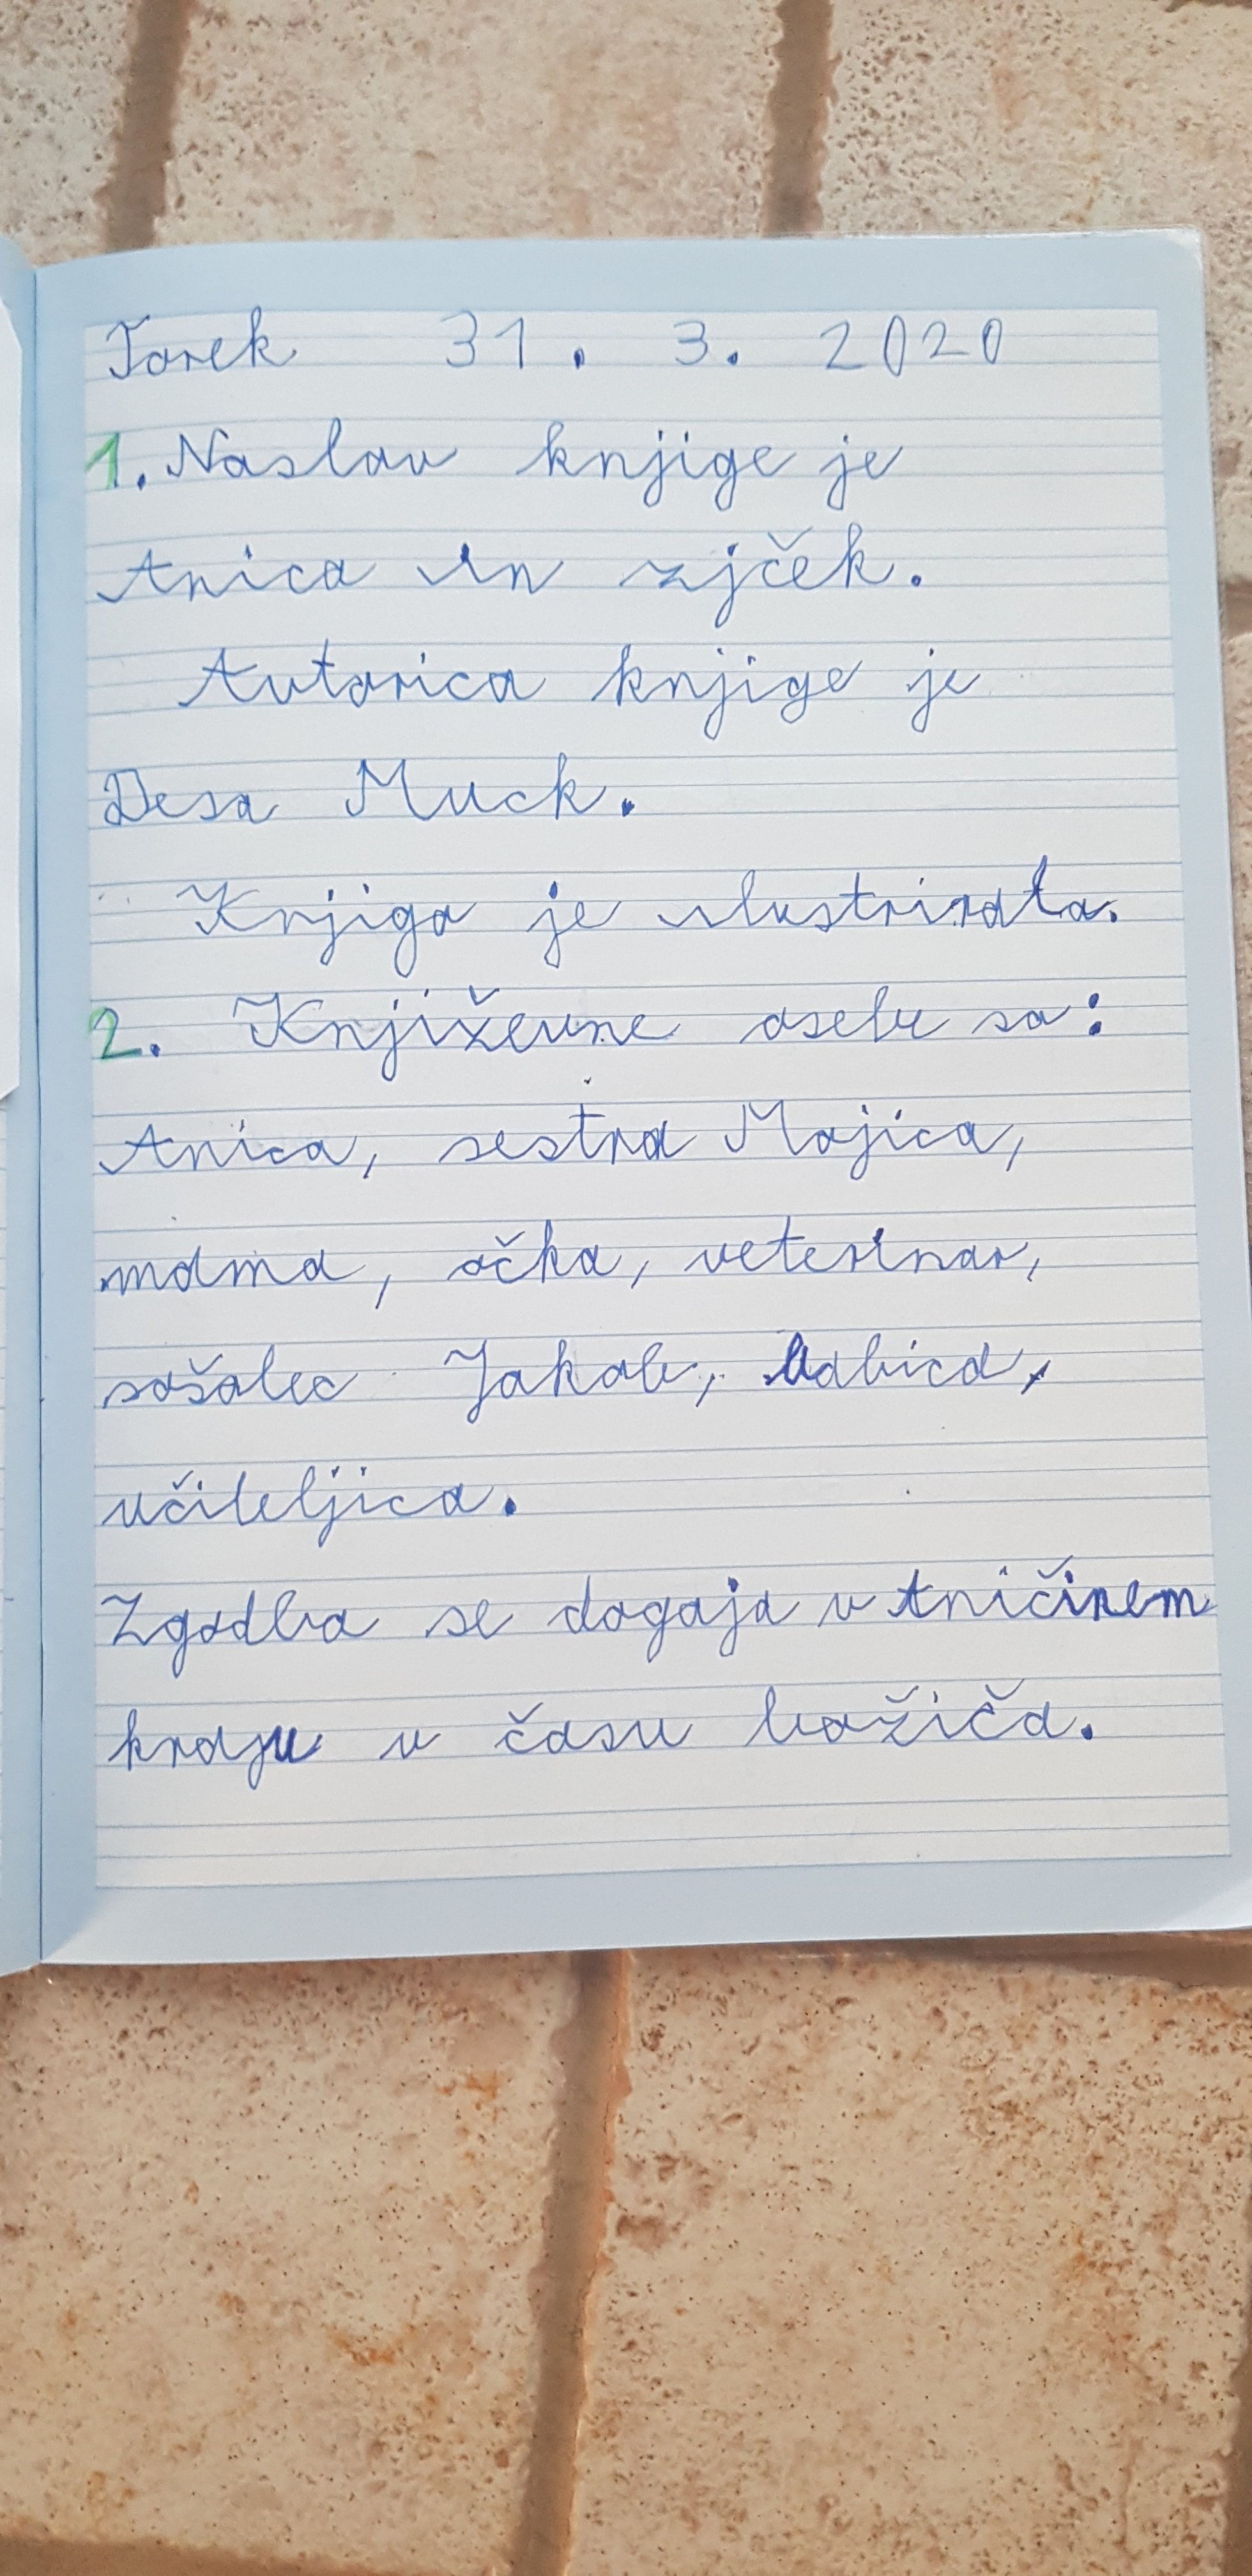 Torek 31. 3. 2020
1. Naslov knjige je
Anica in zjček.
Avtorica knjige je
Desa Muck.
Knjiga je ilustrirata.
2. Književne osebe so:
Anica, sestra Mojica,
mama, očka, veterinar,
sošolec Jakob, babica,
učiteljica.
Zgodba se dogaja v Aničinem
kraju v času božiča.